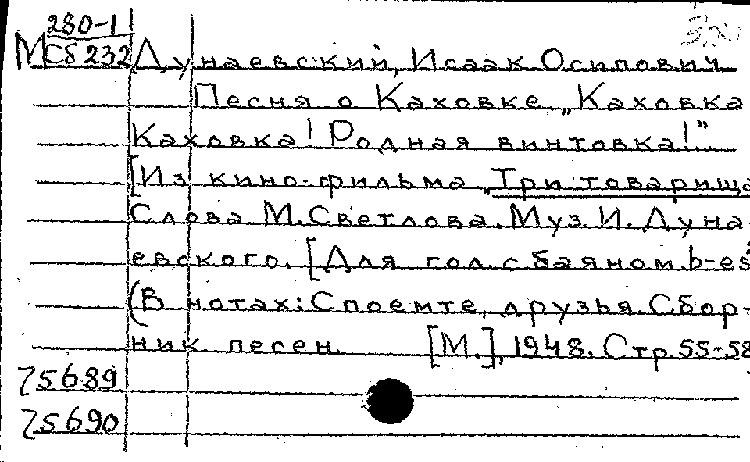 280-1
МСб 232 Дунаевский, Исаак Осипович
Песня о Каховке „Каховка
Каховка! Родная винтовка!"
[Из кино-фильма „Три товарища
Слова М. Светлова. Муз. И. Дуна-
евского. [Для гол. с баяном. b-es²
(В нотах: Споемте, друзья. Сбор-
ник песен. [М.], 1948. Стр. 55-58
75689
75690